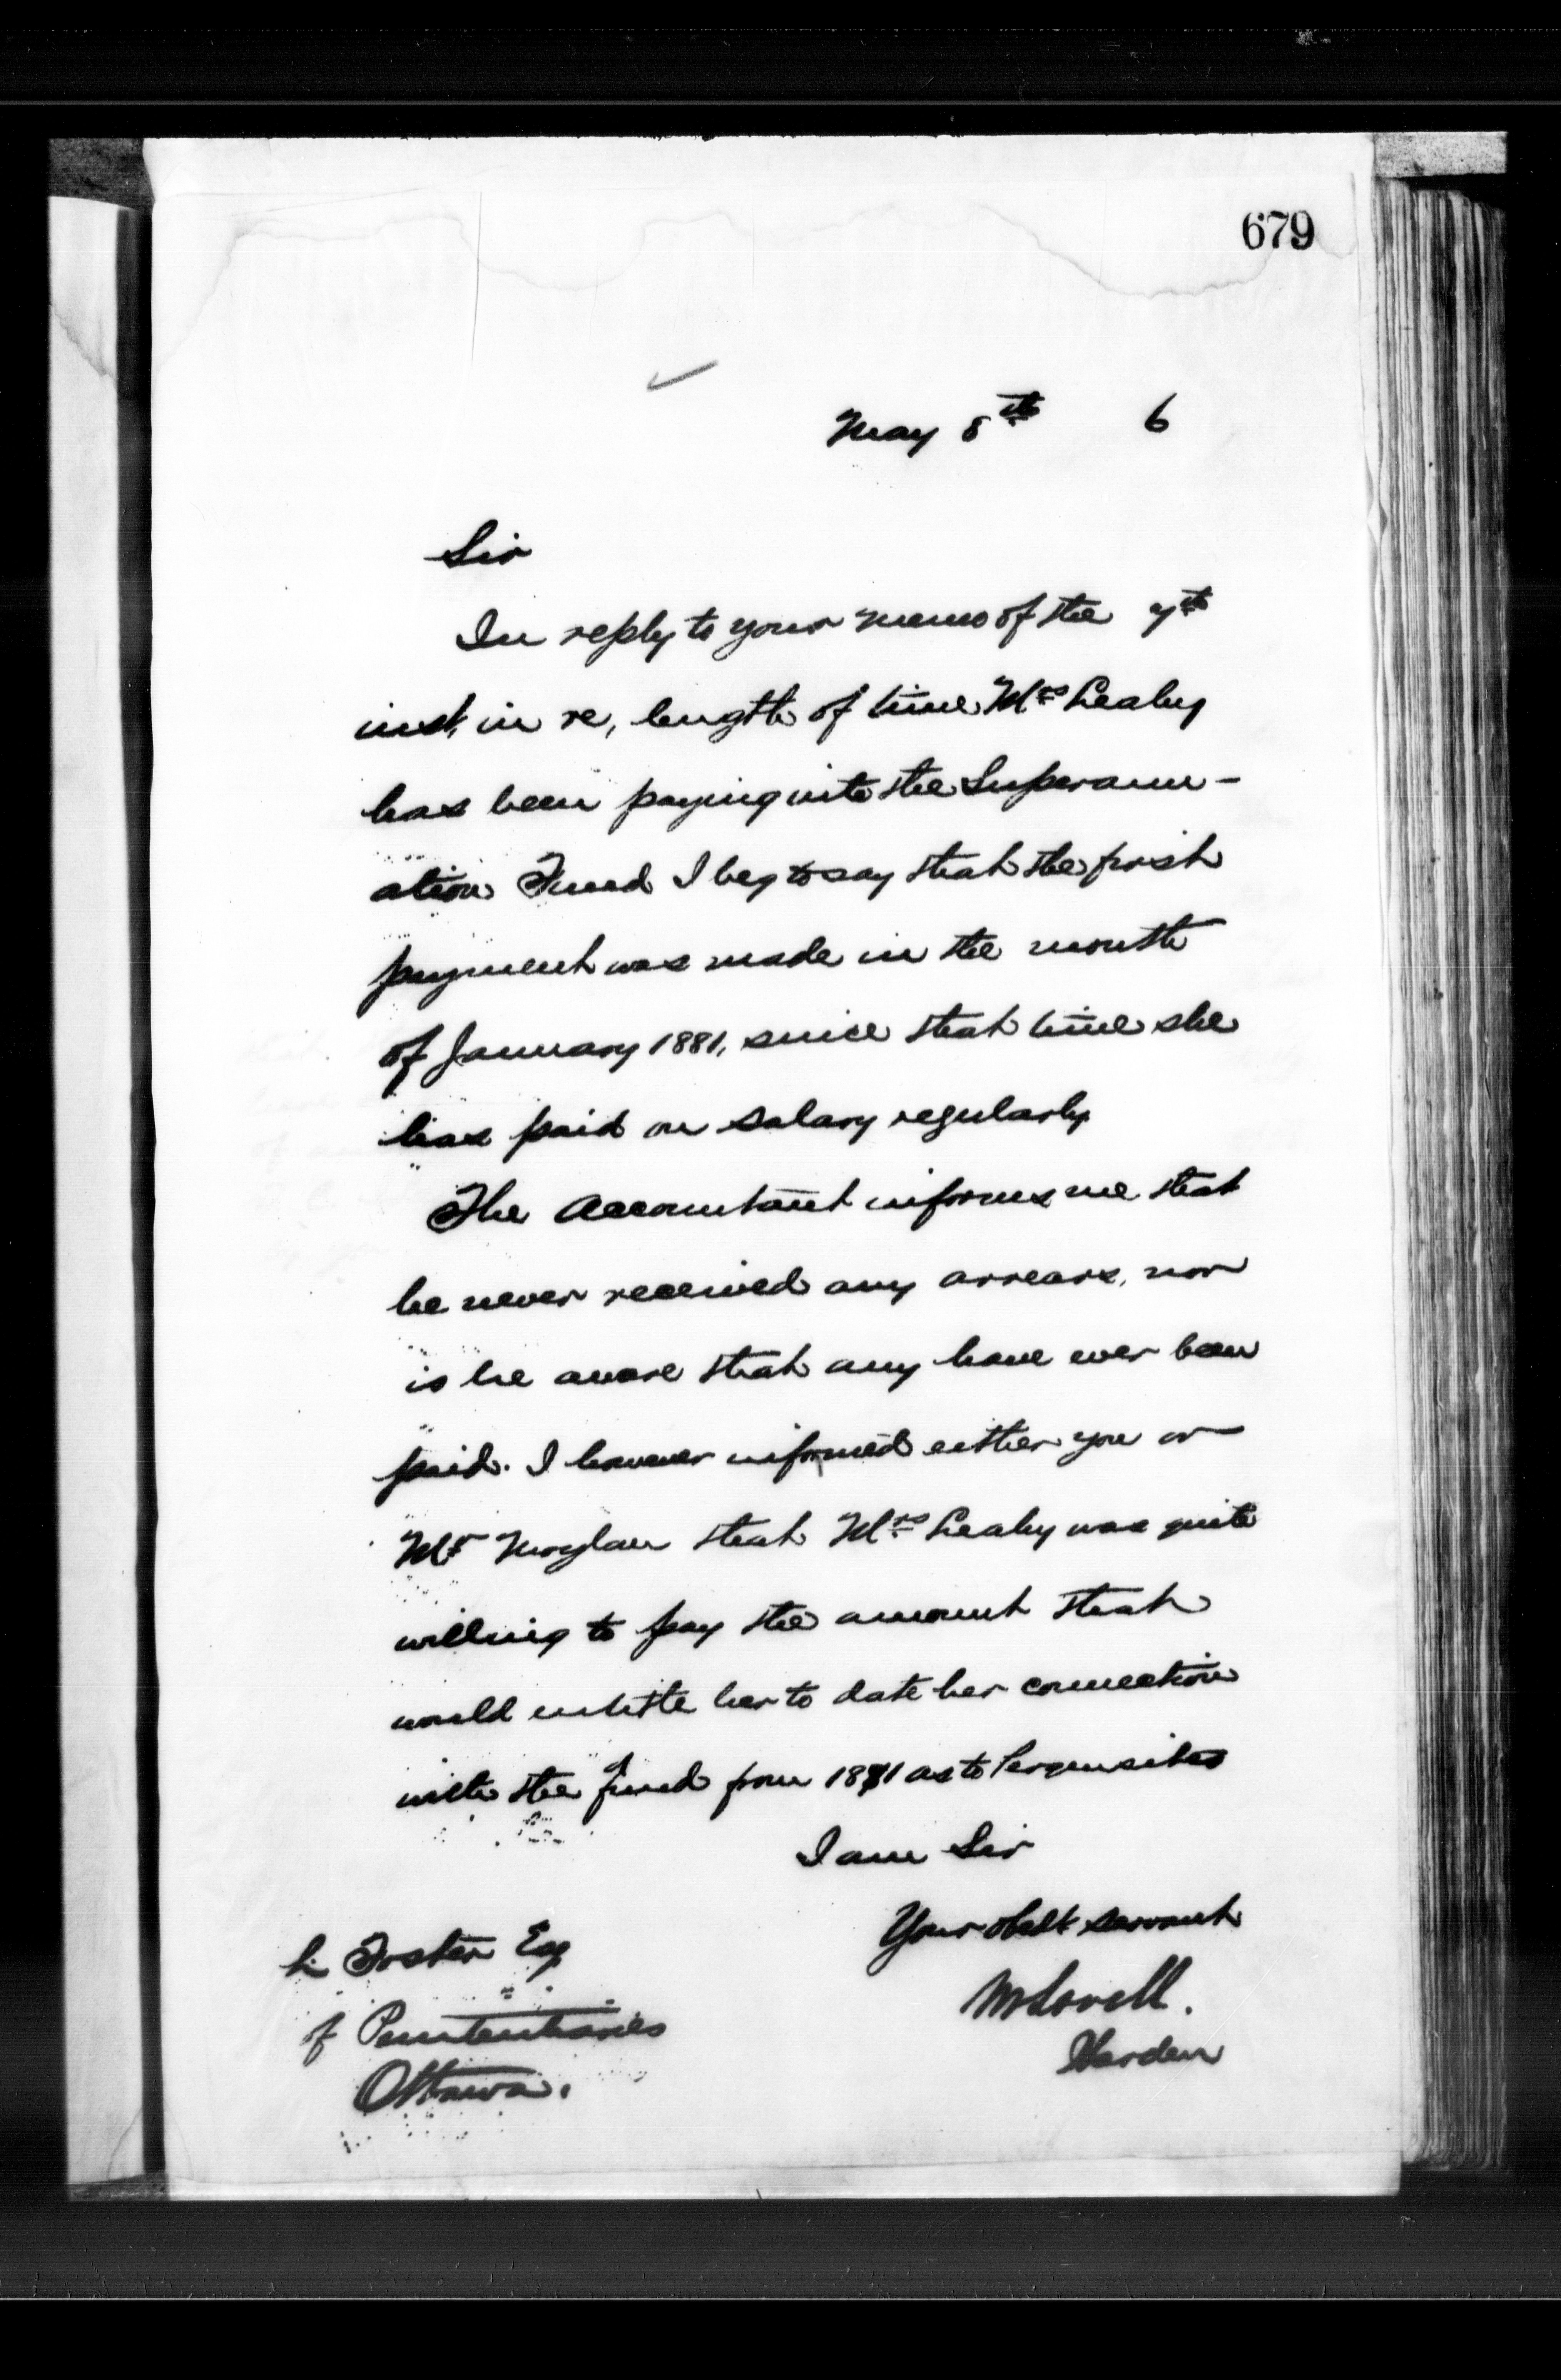 679
May 8th 6
Sir
In reply to your memo of the 7th
inst, in re, length of time Mrs Leahy
has been paying into the Superann-
ation Fund I beg to say that the first
payment was made in the month
of January 1881, since that time she
has paid on salary regularly.
The Accountant informs me that
he never received any arrears, nor
is he aware that any have ever been
paid. I however informed either you or
Mr Moylan that Mrs Leahy was quite
willing to pay the amount that
would entitle her to date her connection
with the fund from 1871 as to Perquisites
I am Sir
Your obedt servant
L Foster Esq
M Lavell.
of Penitentiaries
Warden
Ottawa.